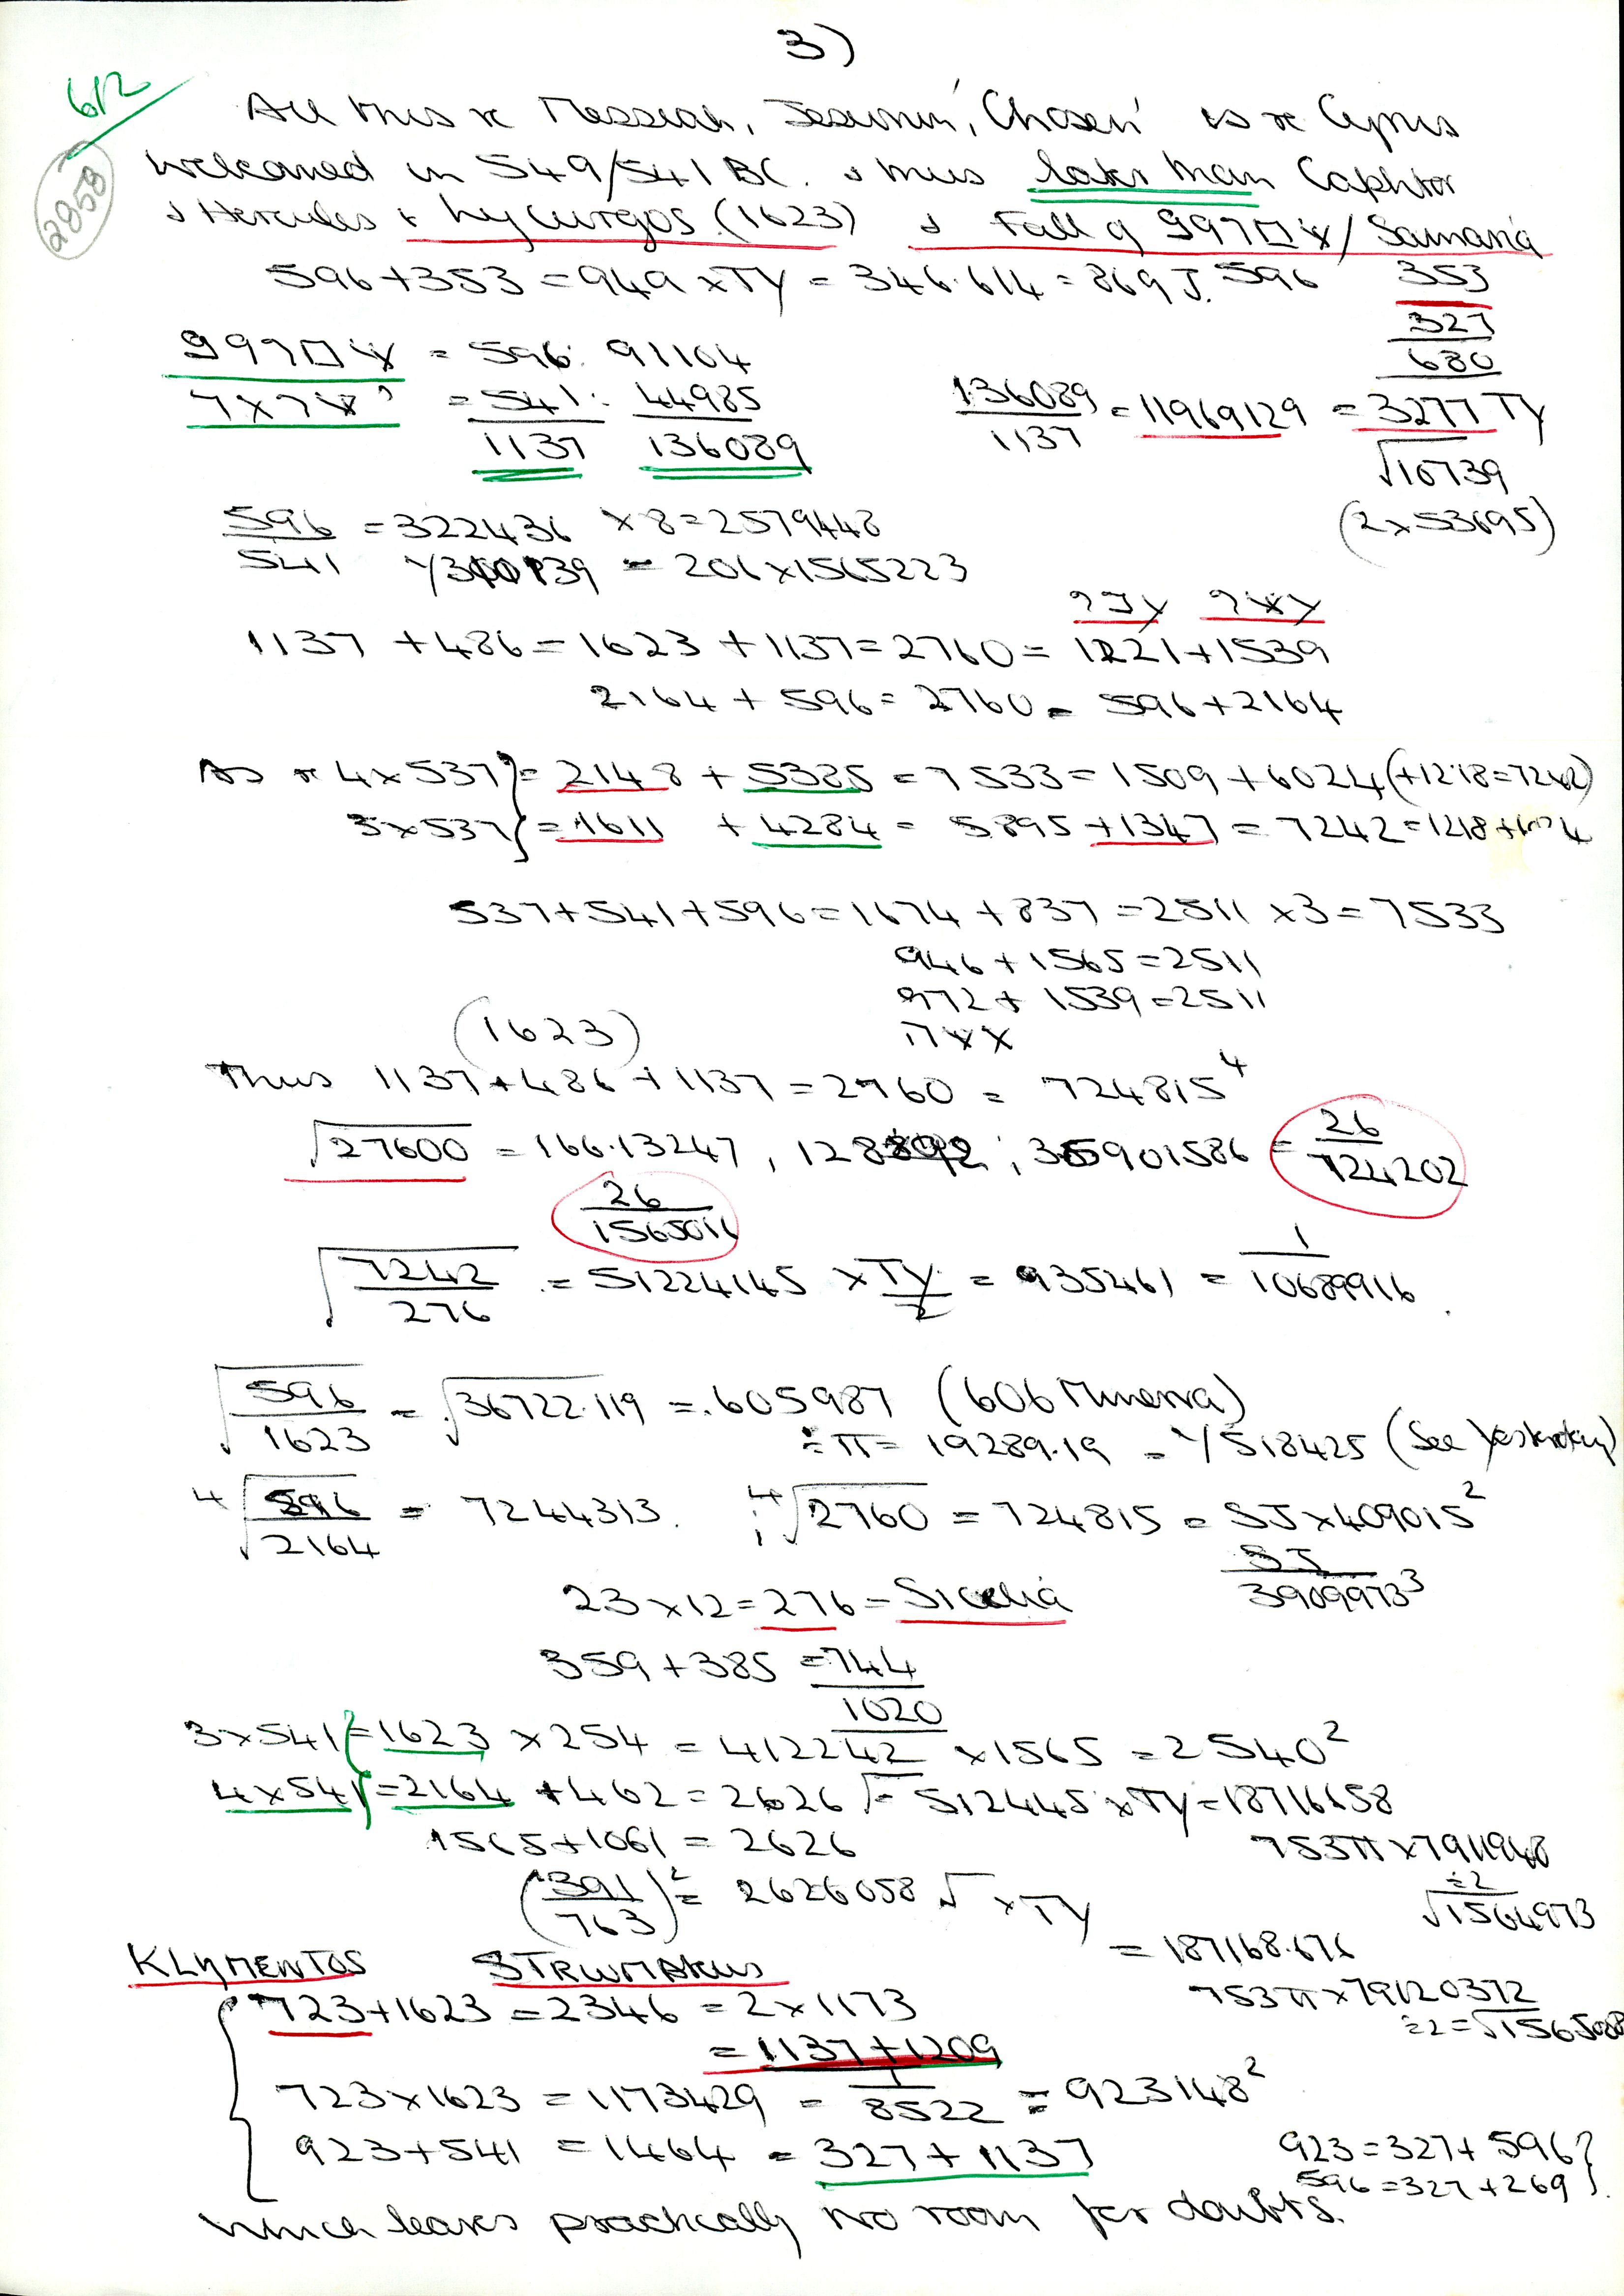 3)
612
2858
All this re Messiah, Jesumin, 'Chosen' is re Cyrus
welcomed in 549/541 BC. & thus later than Caphtor
& Hercules & Lycurgos (1623) & Fall of / Samaria
596 + 353 = 949 x TY = 346.614 = 869 J. 596 353
327
680
= 596 : 91104
= 541 : 44985
1137 136089
136089 / 1137 = 11969129 = 3277 TY
√10739
(2 x 53695)
596 = 322436 x 8 = 2579448
541 = 206 x 1565223
1137 + 486 = 1623 + 1137 = 2760 = 1221 + 1539
2164 + 596 = 2760 = 596 + 2164
As re 4 x 537 } = 2148 + 5385 = 7533 = 1509 + 6024 (+1218 = 7242)
3 x 537 } = 1611 + 4284 = 5895 + 1347 = 7242 = 1218 +
537 + 541 + 596 = 1674 + 837 = 2511 x 3 = 7533
946 + 1565 = 2511
972 + 1539 = 2511
(1623)
Thus 1137 + 486 + 1137 = 2760 = 724815⁴
√27600 = 166.13247, ; 365901586 = 26 / 724202
26 / 1565011
√7242 / 276 = 51224145 x TY / 2 = 935461 = 1 / 10689916
√596 / 1623 = √36722.119 = .605987 (606 Minerva)
÷ π = 19289.19 = 1/518425 (See Yesterday)
⁴√596 / 2164 = 7244313. ; ⁴√2760 = 724815 = SJ x 409015²
SJ / 3909973³
23 x 12 = 276 = Sicelia
359 + 385 = 744
1020
3 x 541 } = 1623 x 254 = 412242 x 1565 = 2540²
4 x 541 } = 2164 + 462 = 2626 √= 512445 x TY = 18716658
1565 + 1061 = 2626
753π x 7911948
÷2
√1564973
(391 / 763)² = 2626058 √ x TY
= 187168.676
753π x 79120372
÷2 = √1565088
KLYMENTOS STRUMAKUS
723 + 1623 = 2346 = 2 x 1173
= 1137 + 1209
723 x 1623 = 1173429 = 1 / 8522 = 923148²
923 + 541 = 1464 = 327 + 1137
923 = 327 + 596 }
596 = 327 + 269 }
which leaves practically no room for doubts.